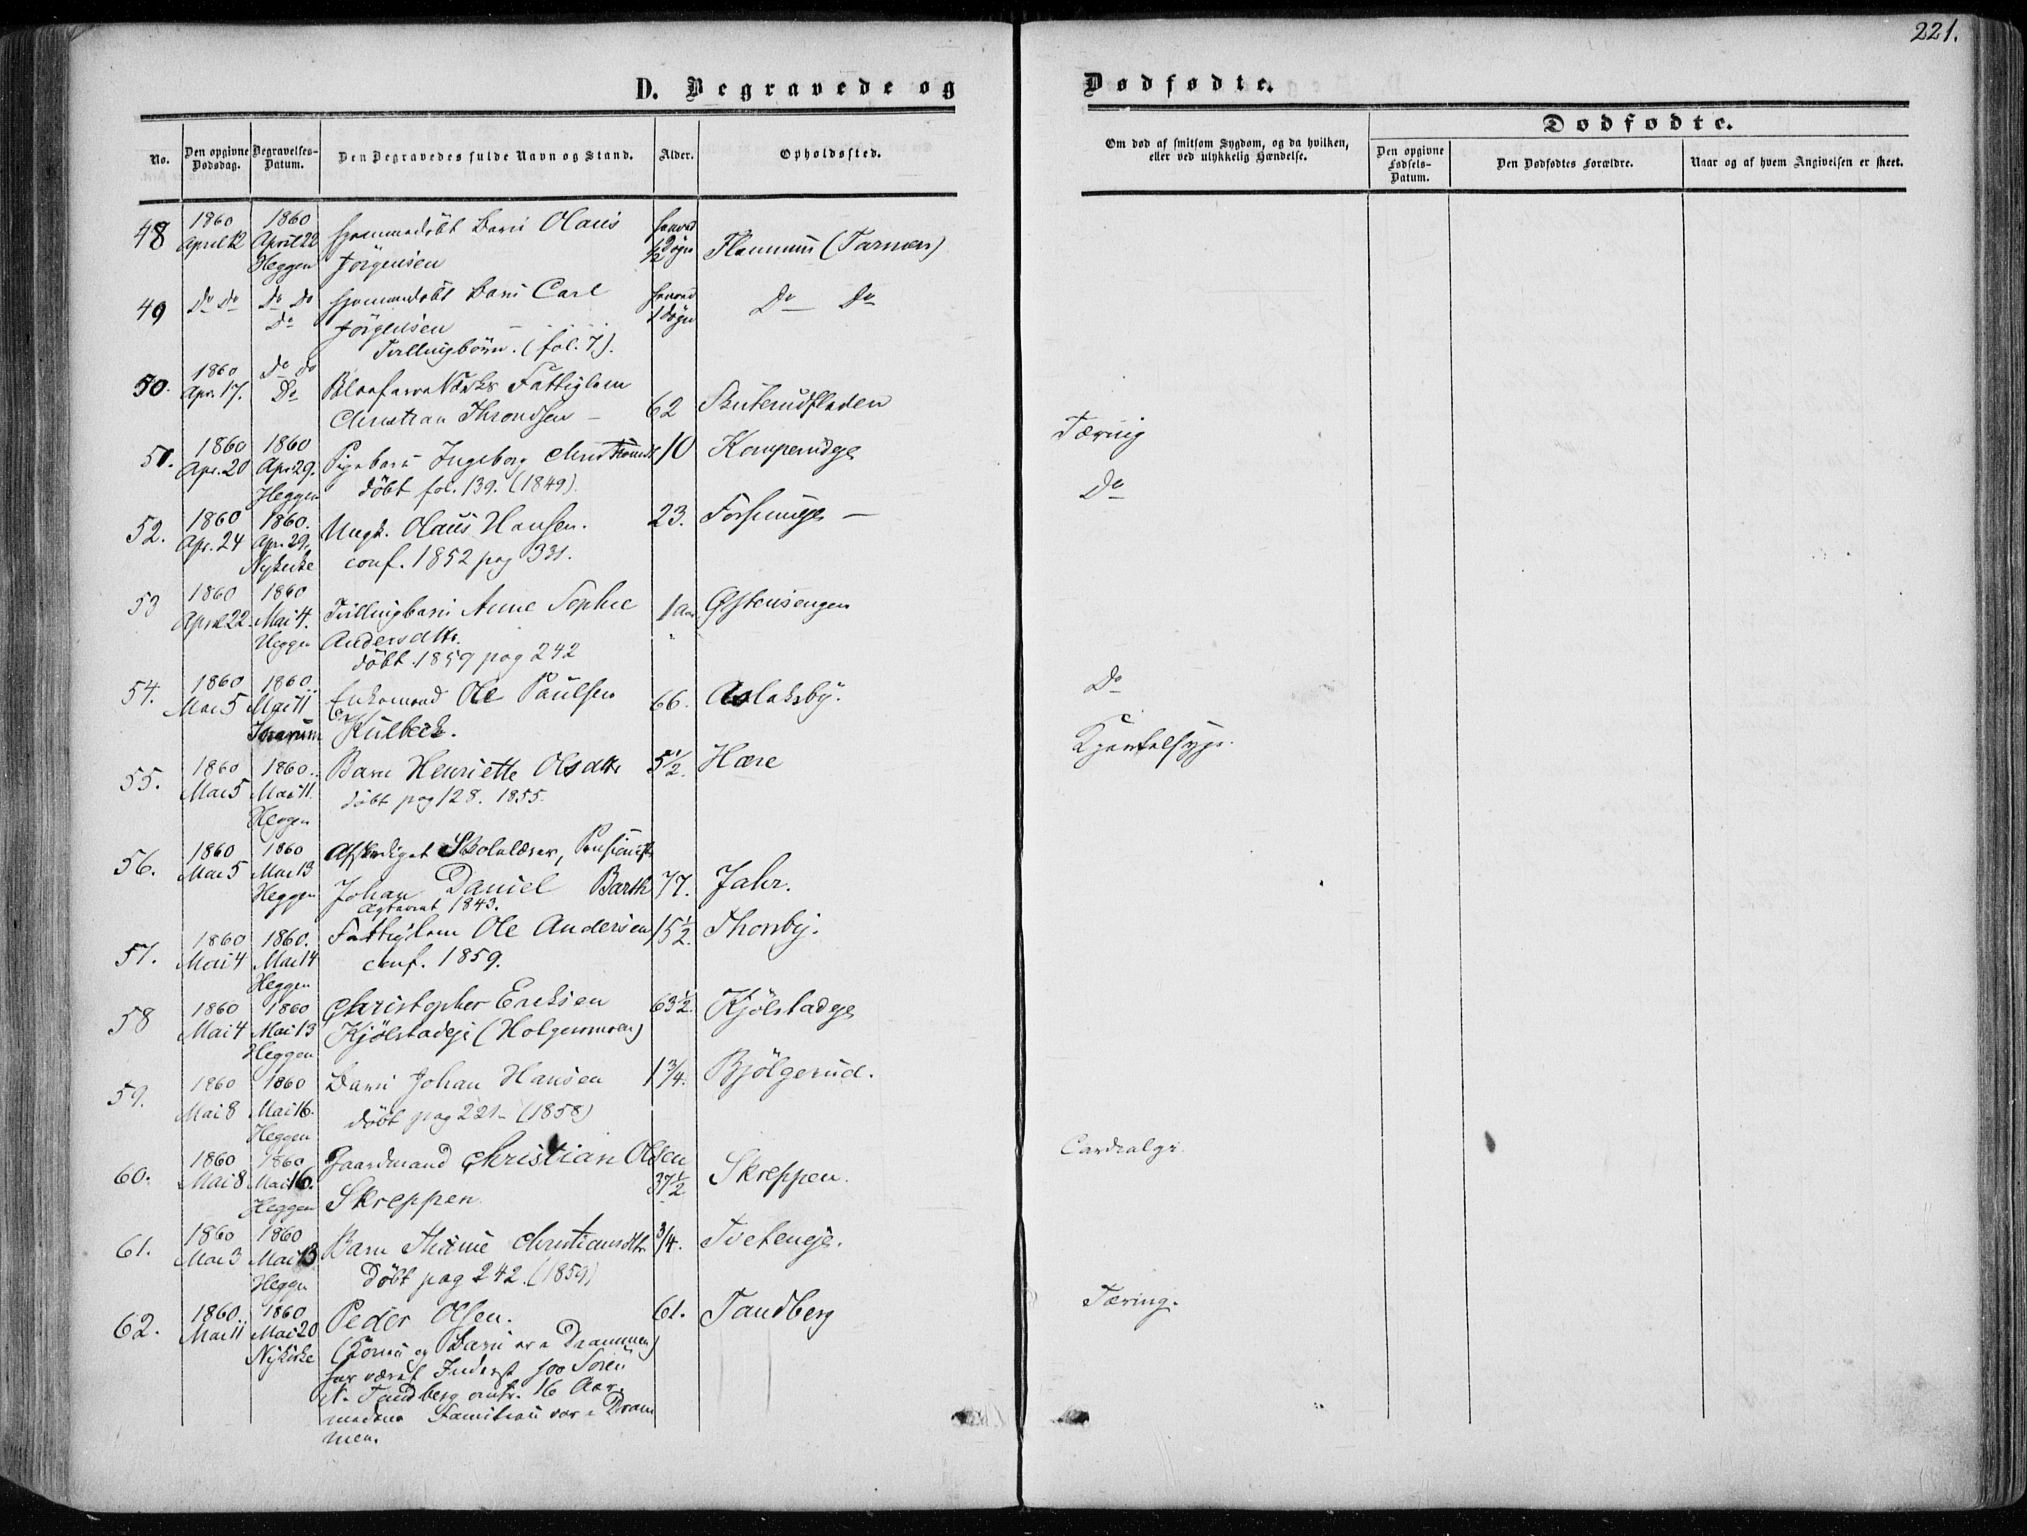 221.
D. Begravede og
Dødfødte.
No.
Den opgivne Dødsdag.
Begravelses-Datum.
Den Begravedes fulde Navn og Stand.
Alder.
Opholdssted.
Om død af smitsom Sygdom, og da hvilken, eller ved ulykkelig Hændelse.
Dødfødte.
Den opgivne Fødsels-Datum.
Den Dødfødtes Forældre.
Naar og af hvem Angivelsen er skeet.
48 1860 1860 hjemmedöbt Barn Olaus
April 12 April 22 Jörgensen ½ Dögn (Tarnen)
Heggen
49 Do Do Do Do hjemmedöbt Barn Carl 1 dögn Do Do
Do Jörgensen
Tvillingbörn. (fol. 7).
50. 1860 Do Do
Apr. 17. Do Fattiglem
Christian Throndsen 62 Skuterudfladen
51. 1860 1860 Pigebarn Ingeborg 10 Komperudeje Tæring
Apr. 20 Apr. 29. döbt fol. 139. (1849).
Heggen Do
52. 1860 1860. Ungk. Olaus Hansen. 23.
Apr. 24 Apr. 29. conf. 1852 pag 331.
Nykirke
53 1860 1860 Tvillingbarn Anne Sophie 1 Østensengen
April 22. Mai 4. Andersdtr.
Heggen döbt 1859 pag 242
54. 1860 1860. Enkemand Ole Paulsen 66. Aslaksby. Do
Mai 5 Mai 11 Kulbeck.
55. 1860 1860. Barn Henriette Olsdtr 5½. Hære Kjertelsyge.
Mai 5 Mai 11. döbt pag 128. 1855.
Heggen
56. 1860 1860 Afskediget Skolelærer, Pensionist
Mai 5 Mai 13 Johan Daniel Barth 77. Jahr.
Heggen 1843.
57. 1860 1860. Fattiglem Ole Andersen 15½. Thorsby.
Mai 4 Mai 14 conf. 1859.
Heggen
58 1860 1860 Christopher Eriksen 63½. Kjölstadeje
Mai 4 Mai 13 Kjölstadeje (Holgersmoen)
Heggen
59. 1860 1860 Barn Johan Hansen 1¾. Bjölgerud.
Mai 8 Mai 16. döbt pag 221 (1858)
Heggen
60. 1860 1860 Gaardmand Christian Olsen Cardialgi.
Mai 8 Mai 16. Skreppen 37½ Skreppen.
Heggen
61. 1860 1860 Barn Christiansdtr ¾. Tveteneje.
Mai 3 Mai 13 Döbt pag 242. (1859)
Heggen
62. 1860. 1860 Peder Olsen. 61. Tandberg Tæring.
Mai 11 Mai 20 (Kone og Barn er i Drammen)
Nykirke har været Inderst hos Sören
N. Tandberg omtr. 16 Aar.
medens Familien var i Dram
men.